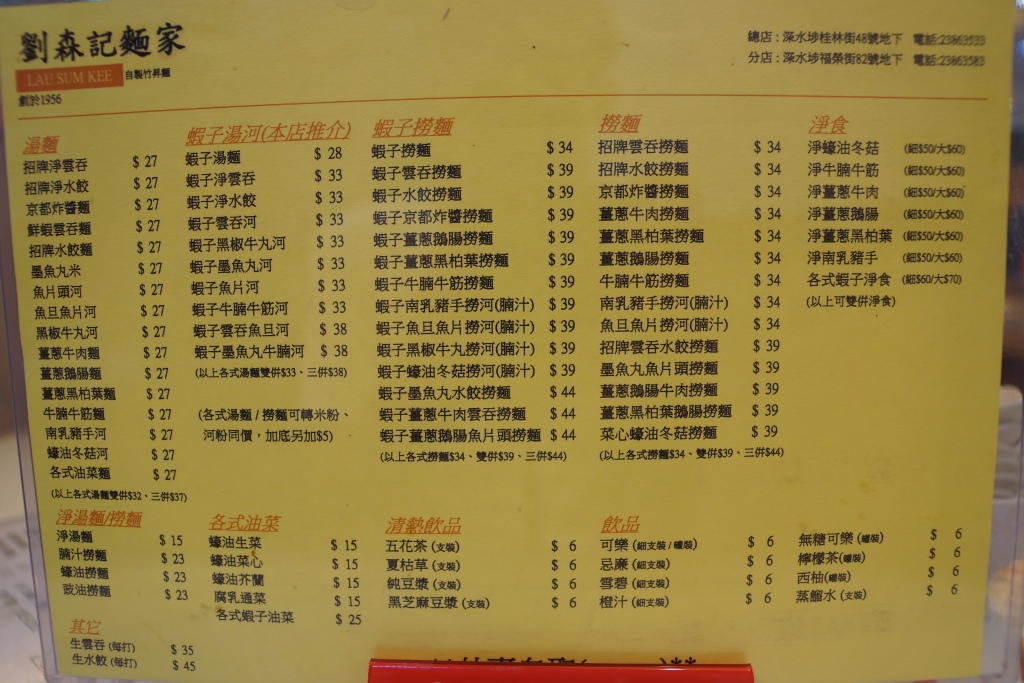 劉森記麵家
LAU SUM KEE 自製竹昇麵
創於1956
總店：深水埗桂林街48號地下 電話:23863533
分店：深水埗福榮街82號地下 電話:23863583
湯麵
招牌淨雲吞 $ 27
招牌淨水餃 $ 27
京都炸醬麵 $ 27
鮮蝦雲吞麵 $ 27
招牌水餃麵 $ 27
墨魚丸米 $ 27
魚片頭河 $ 27
魚旦魚片河 $ 27
黑椒牛丸河 $ 27
薑蔥牛肉麵 $ 27
薑蔥鵝腸麵 $ 27
薑蔥黑柏葉麵 $ 27
牛腩牛筋麵 $ 27
南乳豬手河 $ 27
蠔油冬菇河 $ 27
各式油菜麵 $ 27
(以上各式湯麵雙併$32、三併$37)
蝦子湯河(本店推介)
蝦子湯麵 $ 28
蝦子淨雲吞 $ 33
蝦子淨水餃 $ 33
蝦子雲吞河 $ 33
蝦子黑椒牛丸河 $ 33
蝦子墨魚丸河 $ 33
蝦子魚片河 $ 33
蝦子牛腩牛筋河 $ 33
蝦子雲吞魚旦河 $ 38
蝦子墨魚丸牛腩河 $ 38
(以上各式湯麵雙併$33、三併$38)
(各式湯麵 / 撈麵可轉米粉、
河粉同價，加底另加$5)
蝦子撈麵
蝦子撈麵 $ 34
蝦子雲吞撈麵 $ 39
蝦子水餃撈麵 $ 39
蝦子京都炸醬撈麵 $ 39
蝦子薑蔥鵝腸撈麵 $ 39
蝦子薑蔥黑柏葉撈麵 $ 39
蝦子牛腩牛筋撈麵 $ 39
蝦子南乳豬手撈河(腩汁) $ 39
蝦子魚旦魚片撈河(腩汁) $ 39
蝦子黑椒牛丸撈河(腩汁) $ 39
蝦子蠔油冬菇撈河(腩汁) $ 39
蝦子墨魚丸水餃撈麵 $ 44
蝦子薑蔥牛肉雲吞撈麵 $ 44
蝦子薑蔥鵝腸魚片頭撈麵 $ 44
(以上各式撈麵$34、雙併$39、三併$44)
撈麵
招牌雲吞撈麵 $ 34
招牌水餃撈麵 $ 34
京都炸醬撈麵 $ 34
薑蔥牛肉撈麵 $ 34
薑蔥黑柏葉撈麵 $ 34
薑蔥鵝腸撈麵 $ 34
牛腩牛筋撈麵 $ 34
南乳豬手撈河(腩汁) $ 34
魚旦魚片撈河(腩汁) $ 34
招牌雲吞水餃撈麵 $ 39
墨魚丸魚片頭撈麵 $ 39
薑蔥鵝腸牛肉撈麵 $ 39
薑蔥黑柏葉鵝腸撈麵 $ 39
菜心蠔油冬菇撈麵 $ 39
(以上各式撈麵$34、雙併$39、三併$44)
淨食
淨蠔油冬菇 (細$50/大$60)
淨牛腩牛筋 (細$50/大$60)
淨薑蔥牛肉 (細$50/大$60)
淨薑蔥鵝腸 (細$50/大$60)
淨薑蔥黑柏葉 (細$50/大$60)
淨南乳豬手 (細$50/大$60)
各式蝦子淨食 (細$60/大$70)
(以上可雙併淨食)
淨湯麵/撈麵
淨湯麵 $ 15
腩汁撈麵 $ 23
蠔油撈麵 $ 23
豉油撈麵 $ 23
各式油菜
蠔油生菜 $ 15
蠔油菜心 $ 15
蠔油芥蘭 $ 15
腐乳通菜 $ 15
各式蝦子油菜 $ 25
清熱飲品
五花茶 (支裝) $ 6
夏枯草 (支裝) $ 6
純豆漿 (支裝) $ 6
黑芝麻豆漿 (支裝) $ 6
飲品
可樂 (細支裝 / 罐裝) $ 6
忌廉 (細支裝) $ 6
雪碧 (細支裝) $ 6
橙汁 (細支裝) $ 6
無糖可樂 (罐裝) $ 6
檸檬茶(罐裝) $ 6
西柚(罐裝) $ 6
蒸餾水 (支裝) $ 6
其它
生雲吞 (每打) $ 35
生水餃 (每打) $ 45